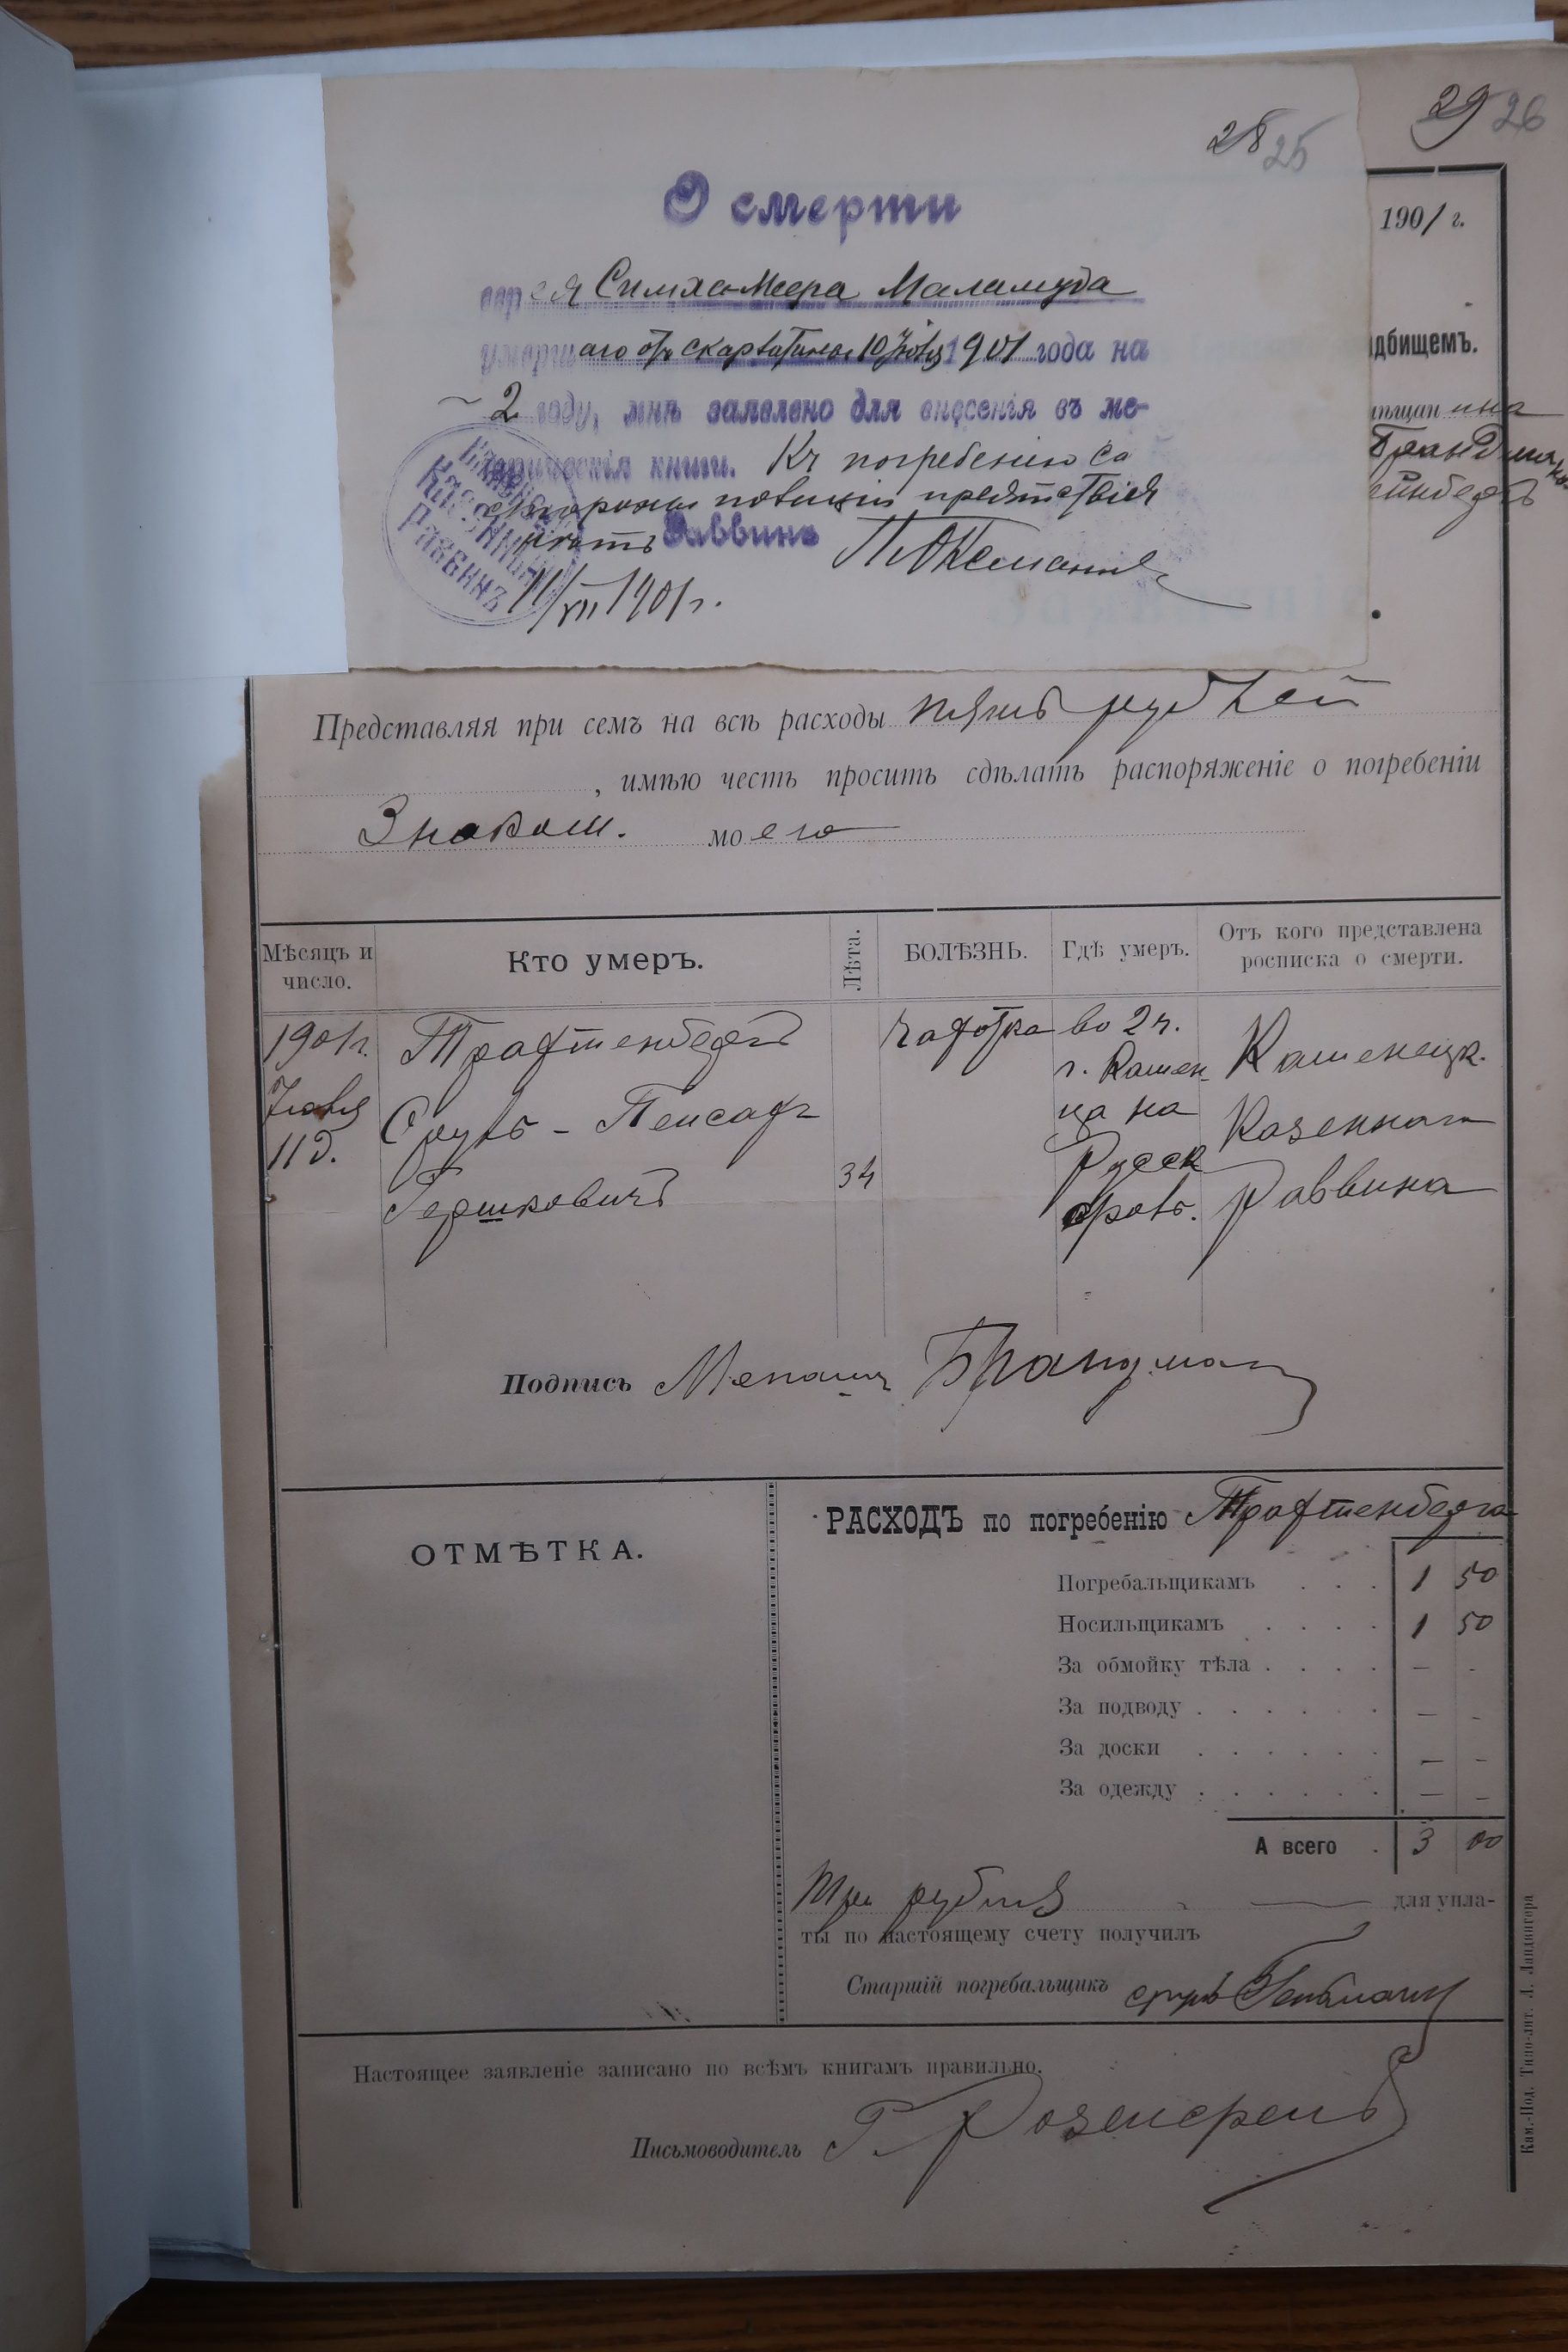 29 26
28 25
О смерти
еврея Симха-Меера Маламуда
умершаго отъ скарлатины 10 Іюля 1901 года на
2 году, мнѣ заявлено для внесенія въ ме-
трическія книги. Къ погребенію со
стороны полиціи препятствія
нѣтъ Раввинъ
Казенный
Раввинъ
11/VII 1901 г.
1901 г.
дбищемъ.
ѣщанина
Представляя при семъ на всѣ расходы пять рублей
, имѣю честь просить сдѣлать распоряженіе о погребеніи
Знаком. моего
Мѣсяцъ и число.
Кто умеръ.
Лѣта.
БОЛѢЗНЬ.
Гдѣ умеръ.
Отъ кого представлена росписка о смерти.
1901 г. Трахтенбергъ чахотка во 2 ч. Каменецк.
г. Камен-
Іюля Сруль - Пейсах ца на Казеннаго
11 д. Русск
Гершковичъ 34 Раввина
Подпись Менаша Брандман
ОТМѢТКА.
РАСХОДЪ по погребенію Трахтенберга
Погребальщикамъ . . . 1 50
Носильщикамъ . . . . 1 50
За обмойку тѣла . . . . — -
За подводу . . . . . . — -
За доски . . . . . . — -
За одежду . . . . . . — -
А всего . 3 00
Три рубля — для упла-
ты по настоящему счету получилъ
Старшій погребальщикъ сруль
Настоящее заявленіе записано по всѣмъ книгамъ правильно.
Письмоводитель Г.
Кам.-Под. Типо-лит. Л. Ландвигера